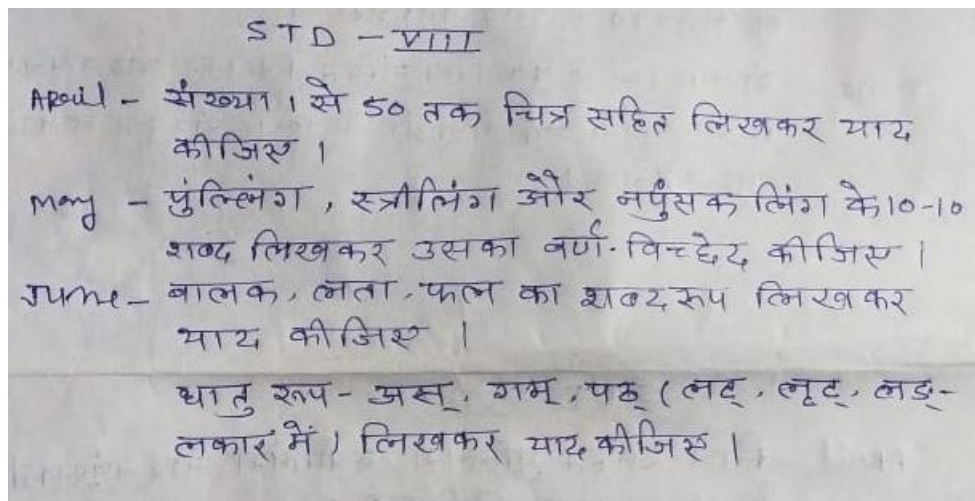 STD - VIII
April - संख्या 1 से 50 तक चित्र सहित लिखकर याद
कीजिए ।
May - पुंल्लिंग, स्त्रीलिंग और नपुंसक लिंग के 10-10
शब्द लिखकर उसका वर्ण-विच्छेद कीजिए ।
June - बालक, लता, फल का शब्द रूप लिखकर
याद कीजिए ।
धातु रूप - अस्, गम्, पठ् (लट्, लृट्, लङ्-
लकार में) लिखकर याद कीजिए ।